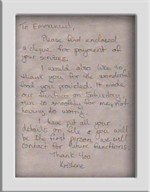 To Emmanuel,
Please find enclosed
a cheque for payment of
your services.
I would also like to
thank you for the wonderful
food you provided. It made
our function on Saturday
to worry.
I have put all your
details on file & you will
be the first person we will
contact for future functions.
Thank You